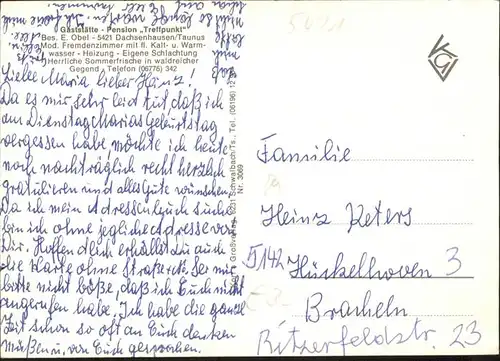 5421
Gaststätte - Pension „Treffpunkt"
Bes. E. Obel - 5421 Dachsenhausen/Taunus
Mod. Fremdenzimmer mit fl. Kalt- u. Warm-
wasser - Heizung - Eigene Schlachtung
Herrliche Sommerfrische in waldreicher
Gegend - Telefon (06776) 342
Liebe Maria lieber Heinz!
Da es mir sehr leid tut daß ich
am Dienstag Marias Geburtstag
vergessen habe möchte ich heute
noch nachträglich recht herzlich
gratulieren und alles Gute wünschen.
Da ich mein Adressenbuch suche
bin ich ohne jegliche Adresse von
Dir. Hoffendlich erhällst Du auch
die Karte ohne Straße etc. Sei mir
bitte nicht böße, daß ich Euch nicht
angerufen habe. Ich habe die ganze
Zeit schon so oft an Euch denken
müßen u. von Euch gesprochen.
6231 Schwalbach/Ts., Tel. (06196)
Nr. 3069
Familie
Heinz Peters
5142 Hückelhoven 3
Bracheln
Ritzerfeldstr. 23